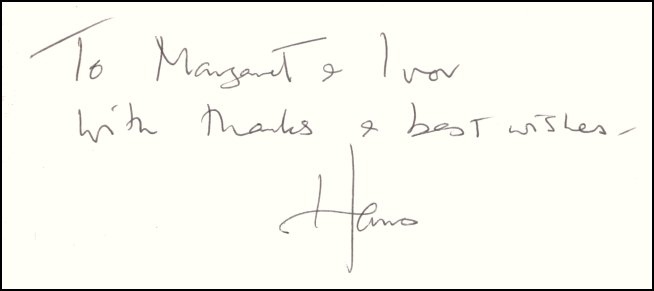 To Margaret & Ivor
with thanks & best wishes –
Hans